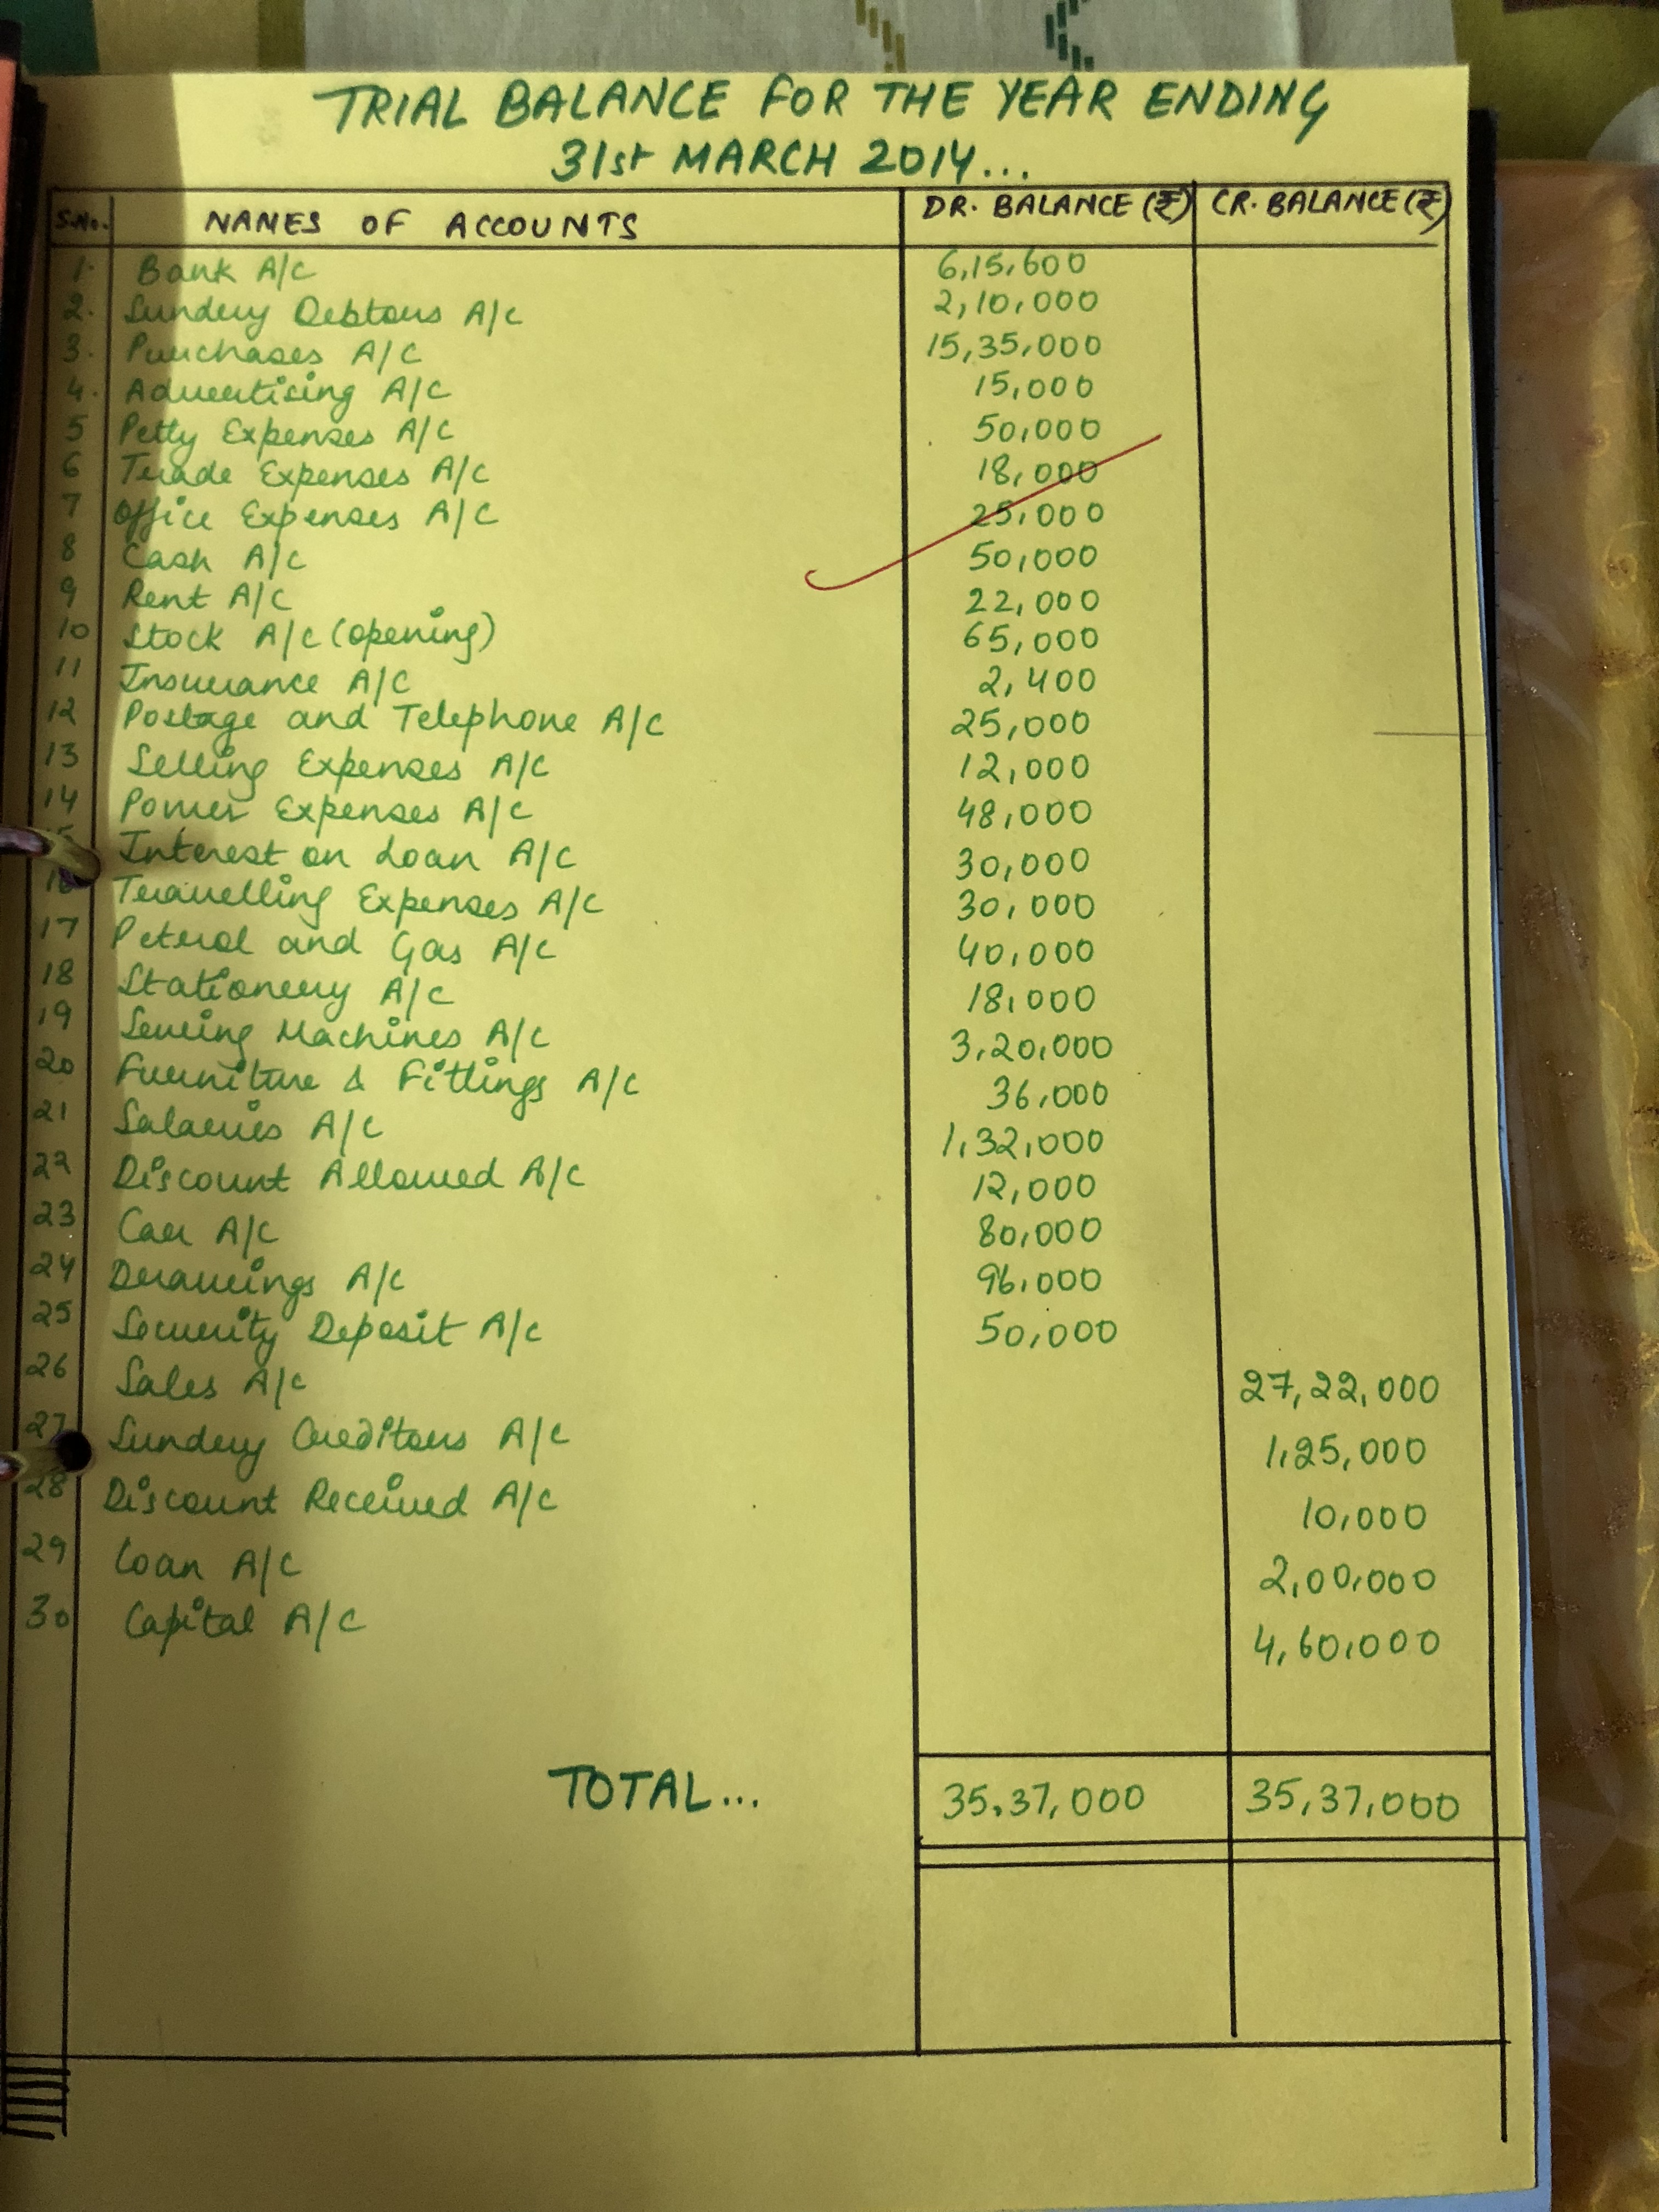 TRIAL BALANCE FOR THE YEAR ENDING
31st MARCH 2014...
S.No. NAMES OF ACCOUNTS DR. BALANCE (₹) CR. BALANCE (₹)
1. Bank A/C 6,15,600
2. Sundry Debtors A/C 2,10,000
3. Purchases A/C 15,35,000
4. Advertising A/C 15,000
5 Petty Expenses A/C 50,000
6 Trade Expenses A/C 18,000
7 Office Expenses A/C 25,000
8 Cash A/C 50,000
9 Rent A/C 22,000
10 Stock A/C (opening) 65,000
11 Insurance A/C 2,400
12 Postage and Telephone A/C 25,000
13 Selling Expenses A/C 12,000
14 Power Expenses A/C 48,000
15 Interest on Loan A/C 30,000
16 Travelling Expenses A/C 30,000
17 Petrol and Gas A/C 40,000
18 Stationery A/C 18,000
19 Sewing Machines A/C 3,20,000
20 Furniture & Fittings A/C 36,000
21 Salaries A/C 1,32,000
22 Discount Allowed A/C 12,000
23 Car A/C 80,000
24 Drawings A/C 96,000
25 Security Deposit A/C 50,000
26 Sales A/C 27,22,000
27 Sundry Creditors A/C 1,25,000
28 Discount Received A/C 10,000
29 Loan A/C 2,00,000
30 Capital A/C 4,60,000
TOTAL... 35,37,000 35,37,000